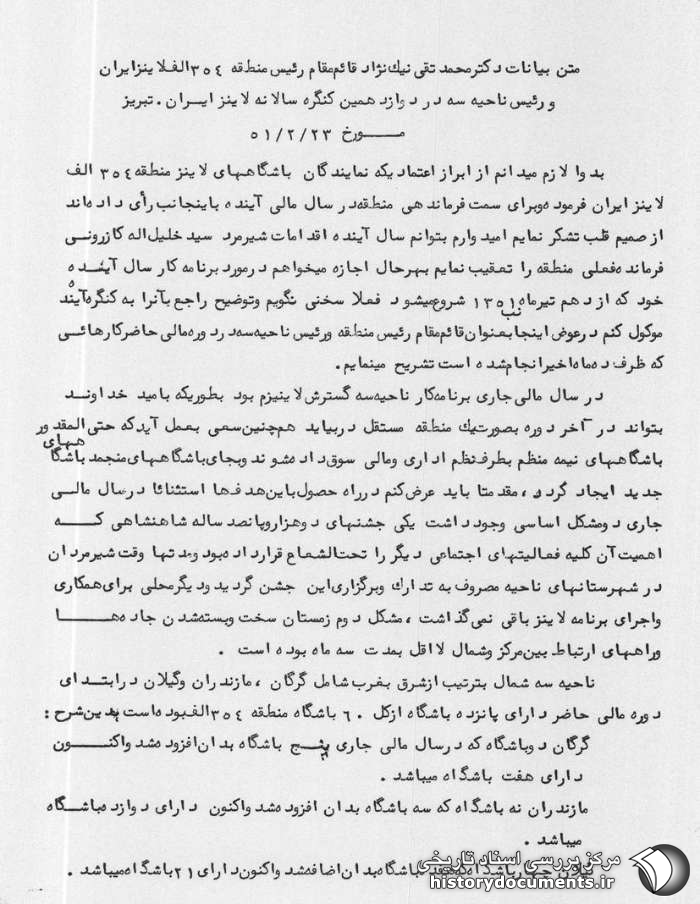 متن بیانات دکتر محمد تقی نیک نژاد قائم مقام رئیس منطقه ۳۵۴ الف لاینز ایران
و رئیس ناحیه سه در دوازدهمین کنگره سالانه لاینز ایران . تبریز
مورخ ۵۱/۲/۲۳
بدوا لازم میدانم از ابراز اعتمادیکه نمایندگان باشگاههای لاینز منطقه ۳۵۴ الف
لاینز ایران فرموده و برای سمت فرماندهی منطقه در سال مالی آینده باینجانب رأی داده اند
از صمیم قلب تشکر نمایم امیدوارم بتوانم سال آینده اقدامات شیرمرد سید خلیل اله کازرونی
فرمانده فعلی منطقه را تعقیب نمایم بهرحال اجازه میخواهم در مورد برنامه کار سال آینده
خود که از دهم تیرماه ۱۳۵۱ شروع میشود فعلا سخنی نگویم و توضیح راجع بآنرا به کنگره آینده
موکول کنم در عوض اینجا بعنوان قائم مقام رئیس منطقه و رئیس ناحیه سه در دوره مالی حاضر کارهائی
که ظرف ده ماه اخیر انجام شده است تشریح مینمایم .
در سال مالی جاری برنامه کار ناحیه سه گسترش لاینیزم بود بطوریکه بامید خداوند
بتواند در آخر دوره بصورت یک منطقه مستقل دربیاید همچنین سعی بعمل آید که حتی المقدور
باشگاههای نیمه منظم بطرف نظم اداری و مالی سوق داده شوند و بجای باشگاههای منجمد باشگاههای
جدید ایجاد گردد ، مقدمتا باید عرض کنم در راه حصول باین هدفها استثنائا در سال مالی
جاری دو مشکل اساسی وجود داشت یکی جشنهای دو هزار و پانصد ساله شاهنشاهی که
اهمیت آن کلیه فعالیتهای اجتماعی دیگر را تحت الشعاع قرار داده بود و مدتها وقت شیرمردان
در شهرستانهای ناحیه مصروف به تدارک و برگزاری این جشن گردید و دیگر محلی برای همکاری
و اجرای برنامه لاینز باقی نمی گذاشت ، مشکل دوم زمستان سخت و بسته شدن جاده ها
و راههای ارتباط بین مرکز و شمال لااقل بمدت سه ماه بوده است .
ناحیه سه شمال بترتیب از شرق بغرب شامل گرگان ، مازندران و گیلان در ابتدای
دوره مالی حاضر دارای پانزده باشگاه از کل ۶۰ باشگاه منطقه ۳۵۴ الف بوده است بدین شرح :
گرگان دو باشگاه که در سال مالی جاری پنج باشگاه بدان افزوده شد و اکنون
دارای هفت باشگاه میباشد .
مازندران نه باشگاه که سه باشگاه بدان افزوده شد و اکنون دارای دوازده باشگاه
میباشد .
گیلان چهار باشگاه که هفده باشگاه بدان اضافه شد و اکنون دارای ۲۱ باشگاه میباشد .
مرکز بررسی اسناد تاریخی
historydocuments.ir